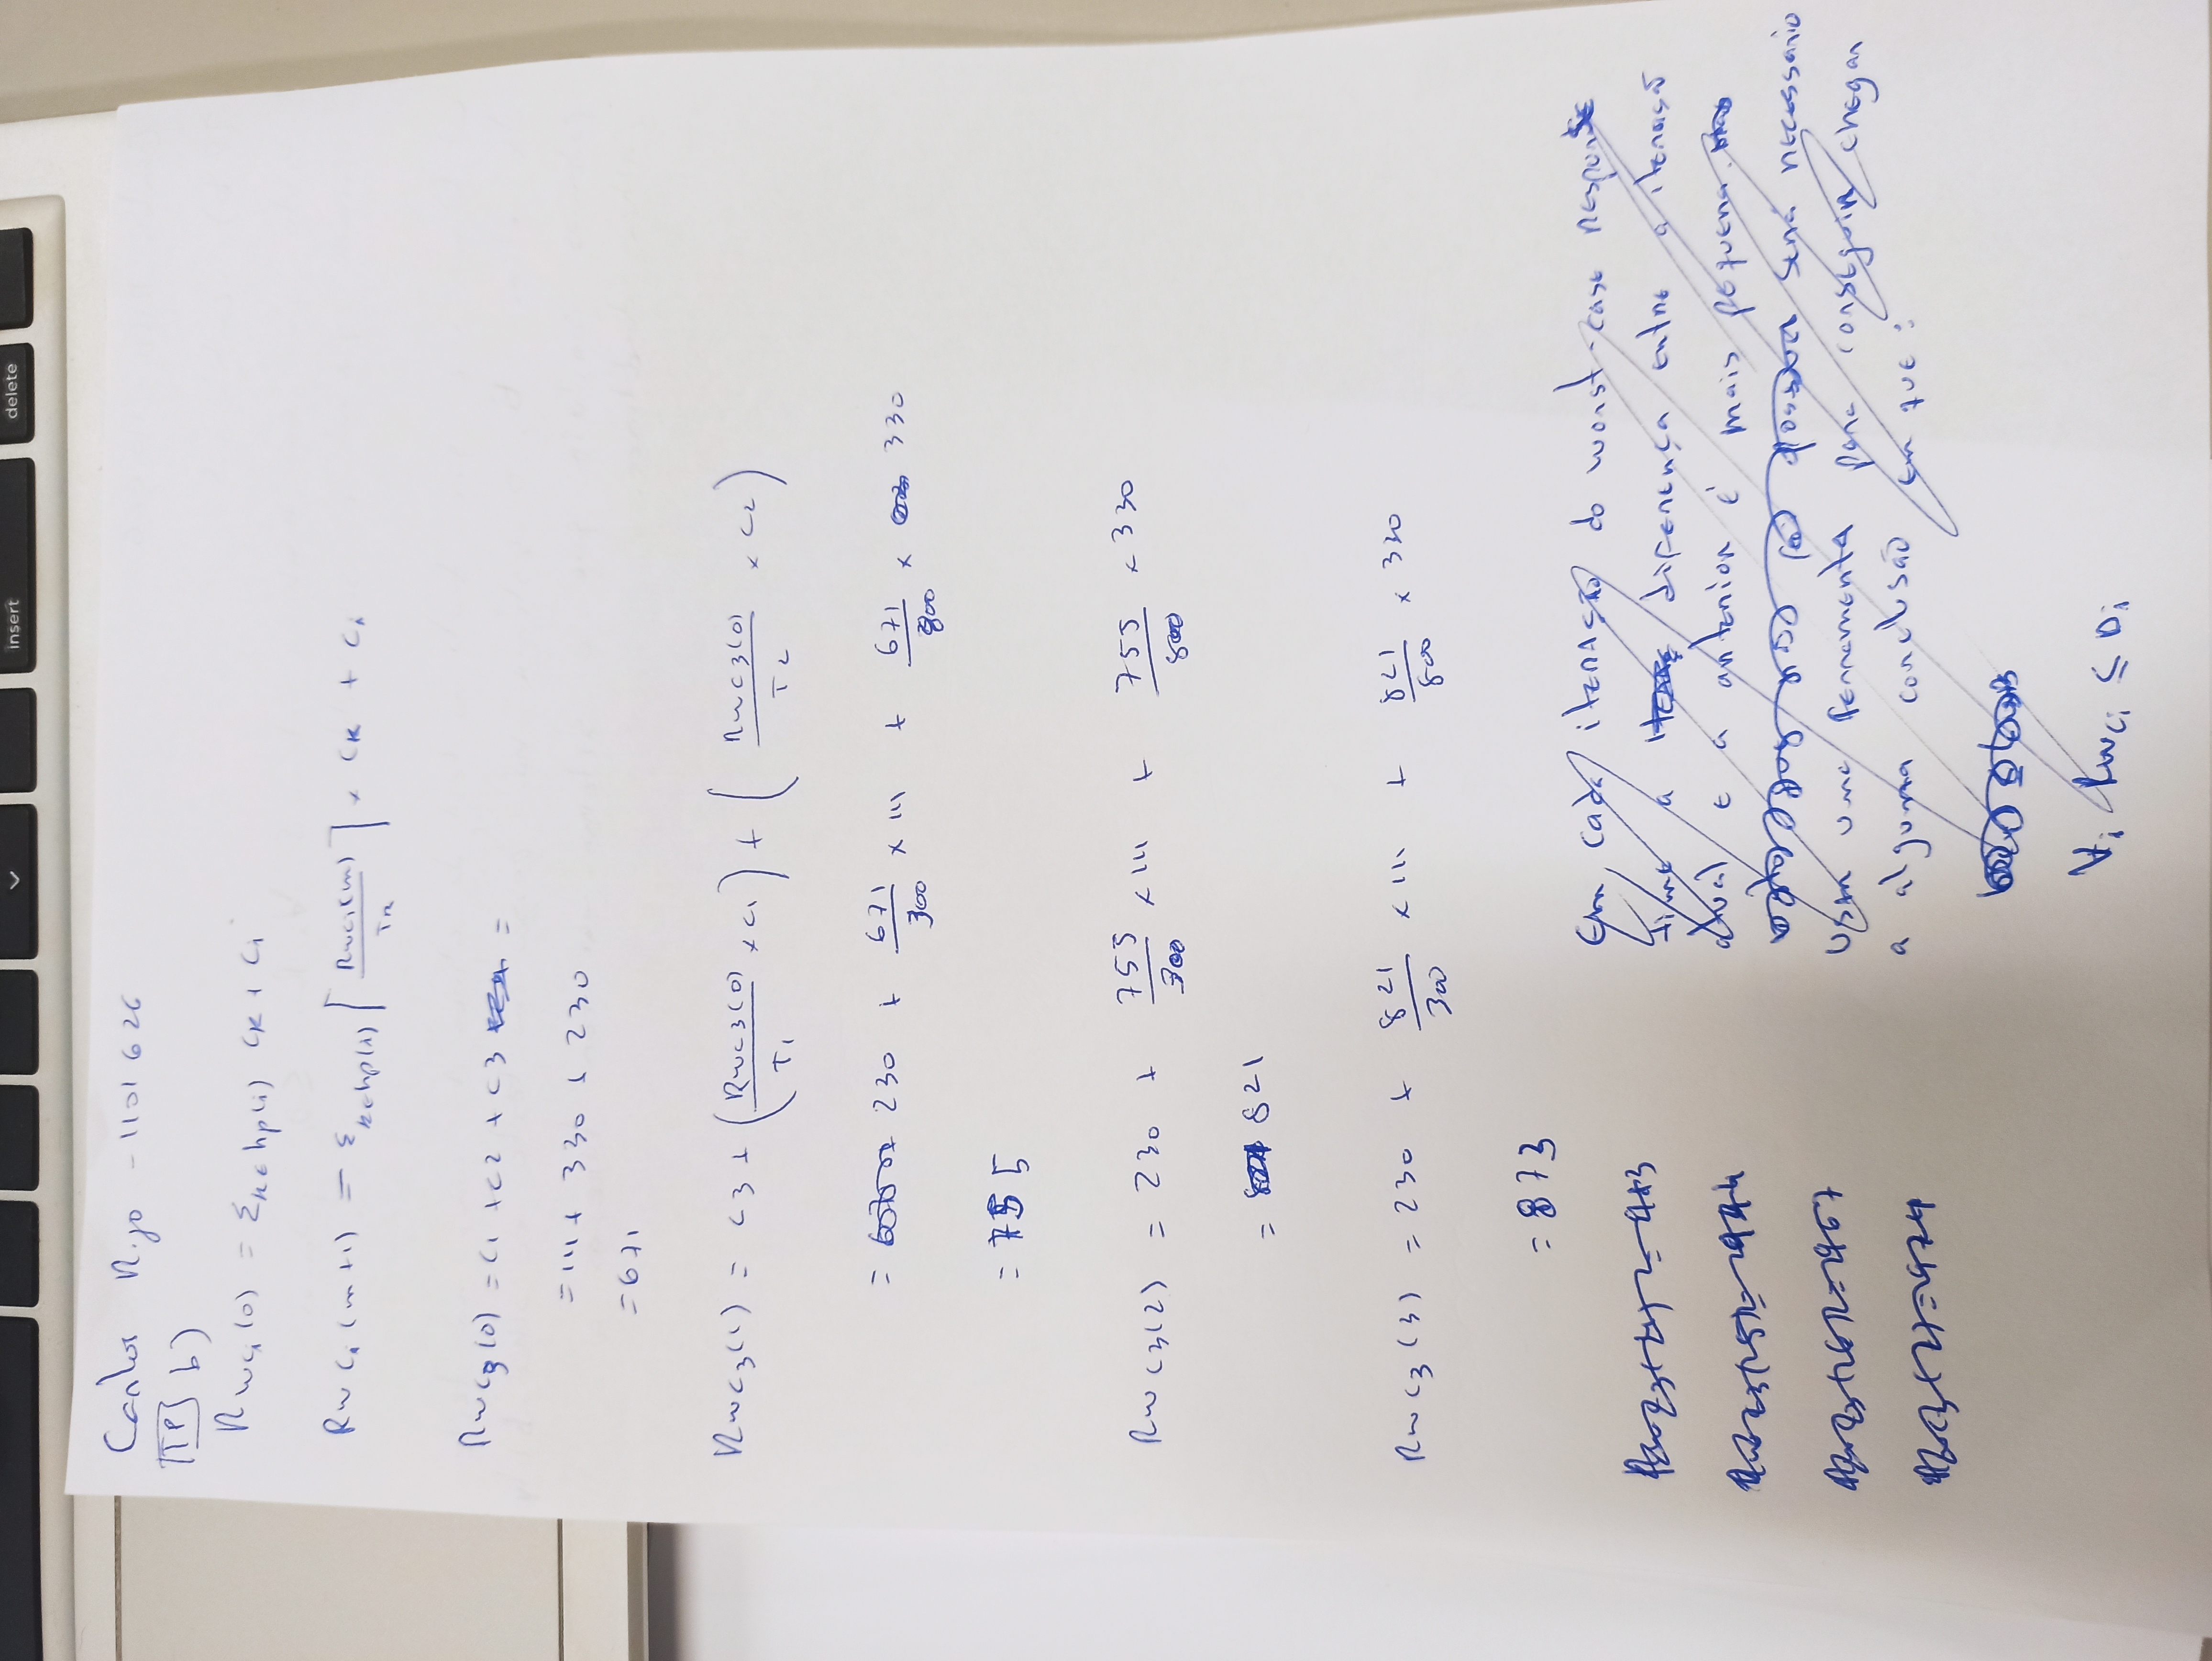 insert
delete
Carlos Rijo - 1101626
TP b)
Rwci(0) = Σk∈hp(i) Ck + Ci
Rwci(m+1) = Σk∈hp(i) ⌈ Rwci(m) / Tk ⌉ × Ck + Ci
Rwc3(0) = C1 + C2 + C3 =
= 111 + 330 + 230
= 671
Rwc3(1) = C3 + ( Rwc3(0) / T1 × C1 ) + ( Rwc3(0) / T2 × C2 )
= 230 + 671 / 300 × 111 + 671 / 800 × 330
= 755
Rwc3(2) = 230 + 755 / 300 × 111 + 755 / 800 × 330
= 821
Rwc3(3) = 230 + 821 / 300 × 111 + 821 / 800 × 330
= 873
Em cada iteração do worst-case response
time a diferença entre a iteração
atual e a anterior é mais pequena
será necessario
usar uma ferramenta para conseguir chegar
a alguma conclusão em que:
∀i Rwci ≤ Di